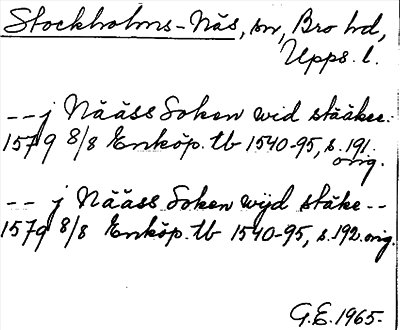 Stockholms-Näs, sn, Bro hd,
Upps. l.
--j Nääss Soken wid stååker.
1579 8/8 Enköp. tb 1540-95, s. 191.
orig.
-- j Nääss Soken wijd ståke --
1579 8/8 Enköp. tb 1540-95, s. 192. orig.
G.E. 1965.